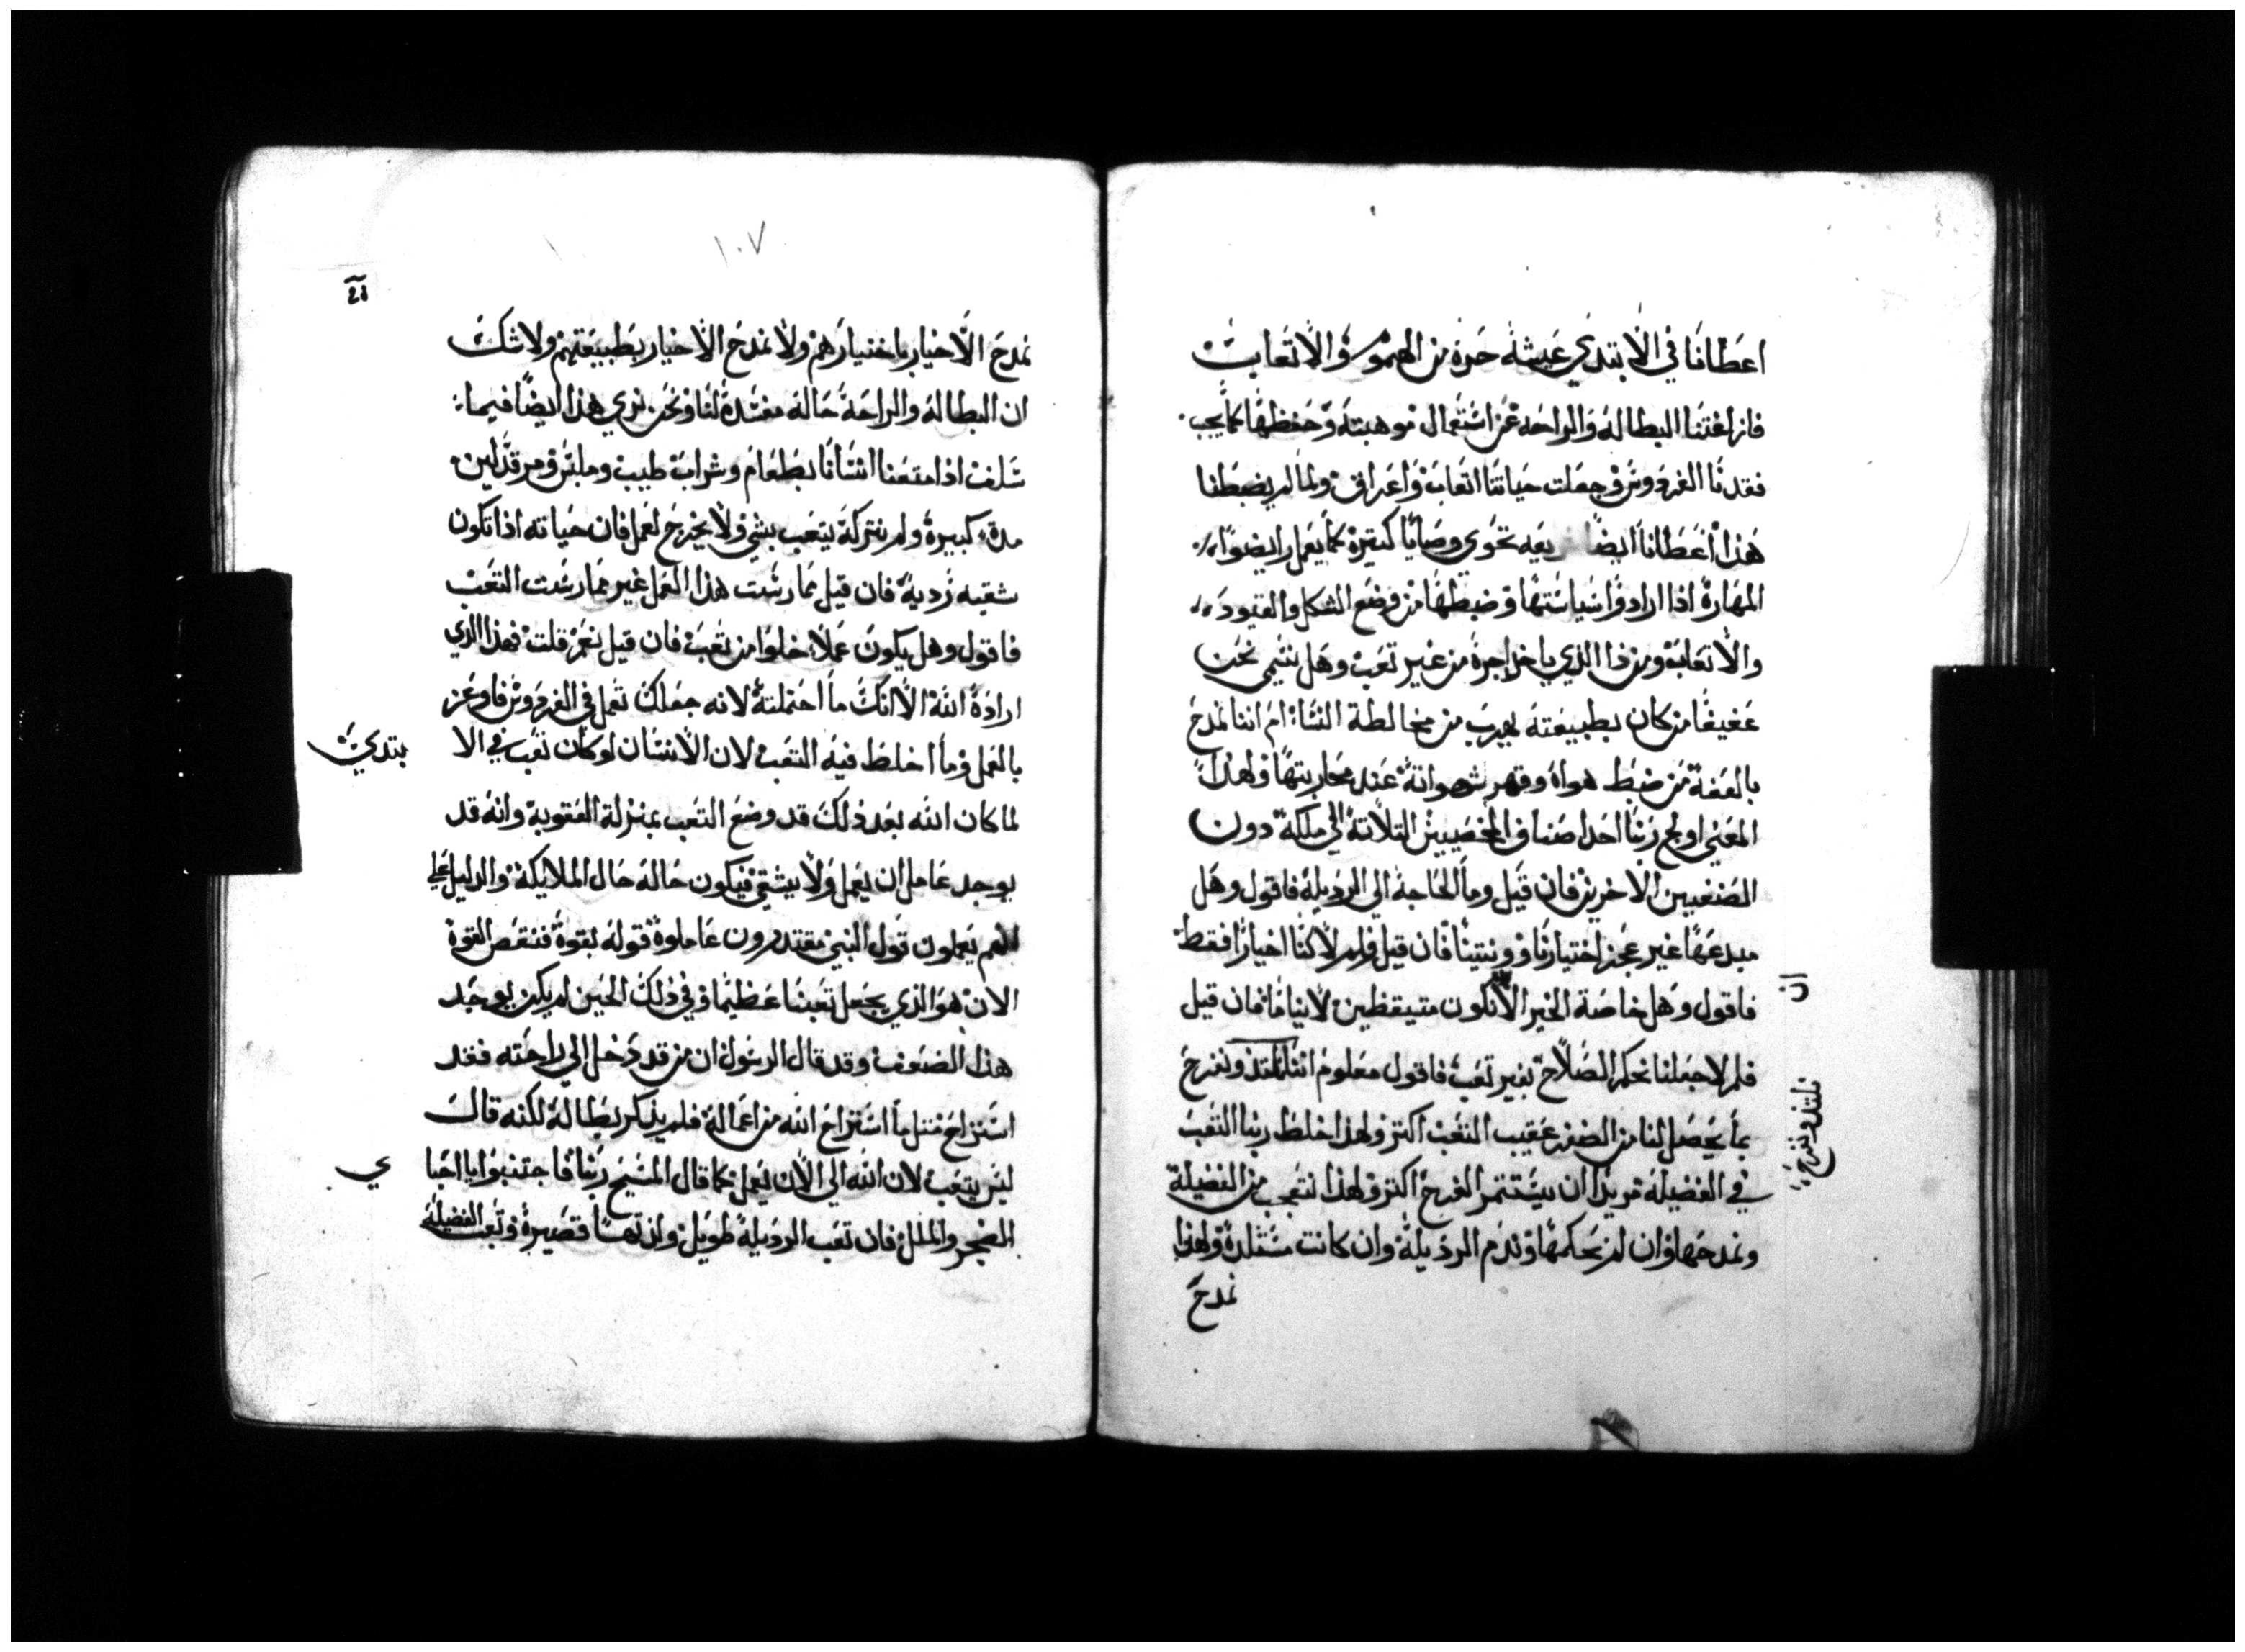 اعطانا في الابتدي عيشة حرة من الهموم والاتعاب
فازاغتنا البطالة والراحه عن استعمال موهبته وحفظها كما يجب
فقدنا الفردوس وجعلت حياتنا اتعاب واعراق ولما لم يضبطنا
هذا اعطانا ايضا يعه تحوي وصايا كتيرة كما يعمل رايضوا
المهارة اذا ارادوا سياستها وضبطها من وضع الشكل والقيود
والاتعابة ومن ذا الذي ياخد اجرة من غير تعب وهل نسمي نحن
عفيفا من كان بطبيعته يهرب من مخالطة النساء ام اننا نمدح
بالعفة من ضبط هواه وقهر شهواته عند محاربتها ولهذا
المعني اولج ربنا احد اصناف المخصيين التلاتة الي ملكه دون
الصنفيين الاخرين فان قيل وما الحاجة الي الرديلة فاقول وهل
مبدعها غير عجز اختيارنا وونيتنا فان قيل فلم لا كنا اخيارا فقط
فاقول وهل خاصة الخير الا نكون متيقظين لا نياما فان قيل
ان
فلم لا جعلنا نحكم الصلاح بغير تعب فاقول معلوم اننا نلتذ ونفرح
نلتذ ونفرح
بما يحصل لنا من الضفر عقيب التعب اكتر ولهذا خلط ربنا التعب
في الفضيلة مريدا ان يستتمر الفرح اكتر ولهذا نتعجب من الفضيلة
ونمدحها وان لم نحكمها وندم الرديلة وان كانت مستلدة ولهذا
نمدح
١٠٧
نمدح الاخيار باختيارهم ولا نمدح الاخيار بطبيعتهم ولا شك
ان البطالة والراحة حالة مفسدة لنا ونحن نري هذا ايضا فيما
سلف اذا متعنا انسانا بطعام وشراب طيب وملبس ومرقد لين
مدة كبيرة ولم نتركه يتعب بشي ولا يخرج لعمل فان حياته اذا تكون
شقيه ردية فان قيل ممارست هذا العمل غير ممارست التعب
فاقول وهل يكون عملا خلوا من تعب فان قيل نعم قلت فهذا الذي
ارادة الله الا انك ما احتملته لانه جعلك تعمل في الفردوس فاوعز
بالعمل وما اخلط فيه التعب لان الانسان لو كان تعب في الا
بتدي
لما كان الله بعد ذلك قد وضع التعب بمنزلة العقوبة وانه قد
يوجد عامل ان يعمل ولا يشقي فيكون حاله حال الملايكة والدليل علي
انهم يعملون قول النبي مقتدرون عاملوه قوله بقوة فنقص القوة
الان هو الذي يجعل تعبنا عظيما وفي ذلك الحين لم يكن يوجد
هذا الضعف وقد قال الرسول ان من قد دخل الي راحته فقد
استراح متل ما استراح الله من اعماله فلم يذكر بطالة لكنه قال
ليس يتعب لان الله الي الان يعمل كما قال المسيح ربنا فاجتنبوا يا احبا
ي
الضجر والملل فان تعب الرديلة طويل ولذتها قصيرة وتعب الفضيلة